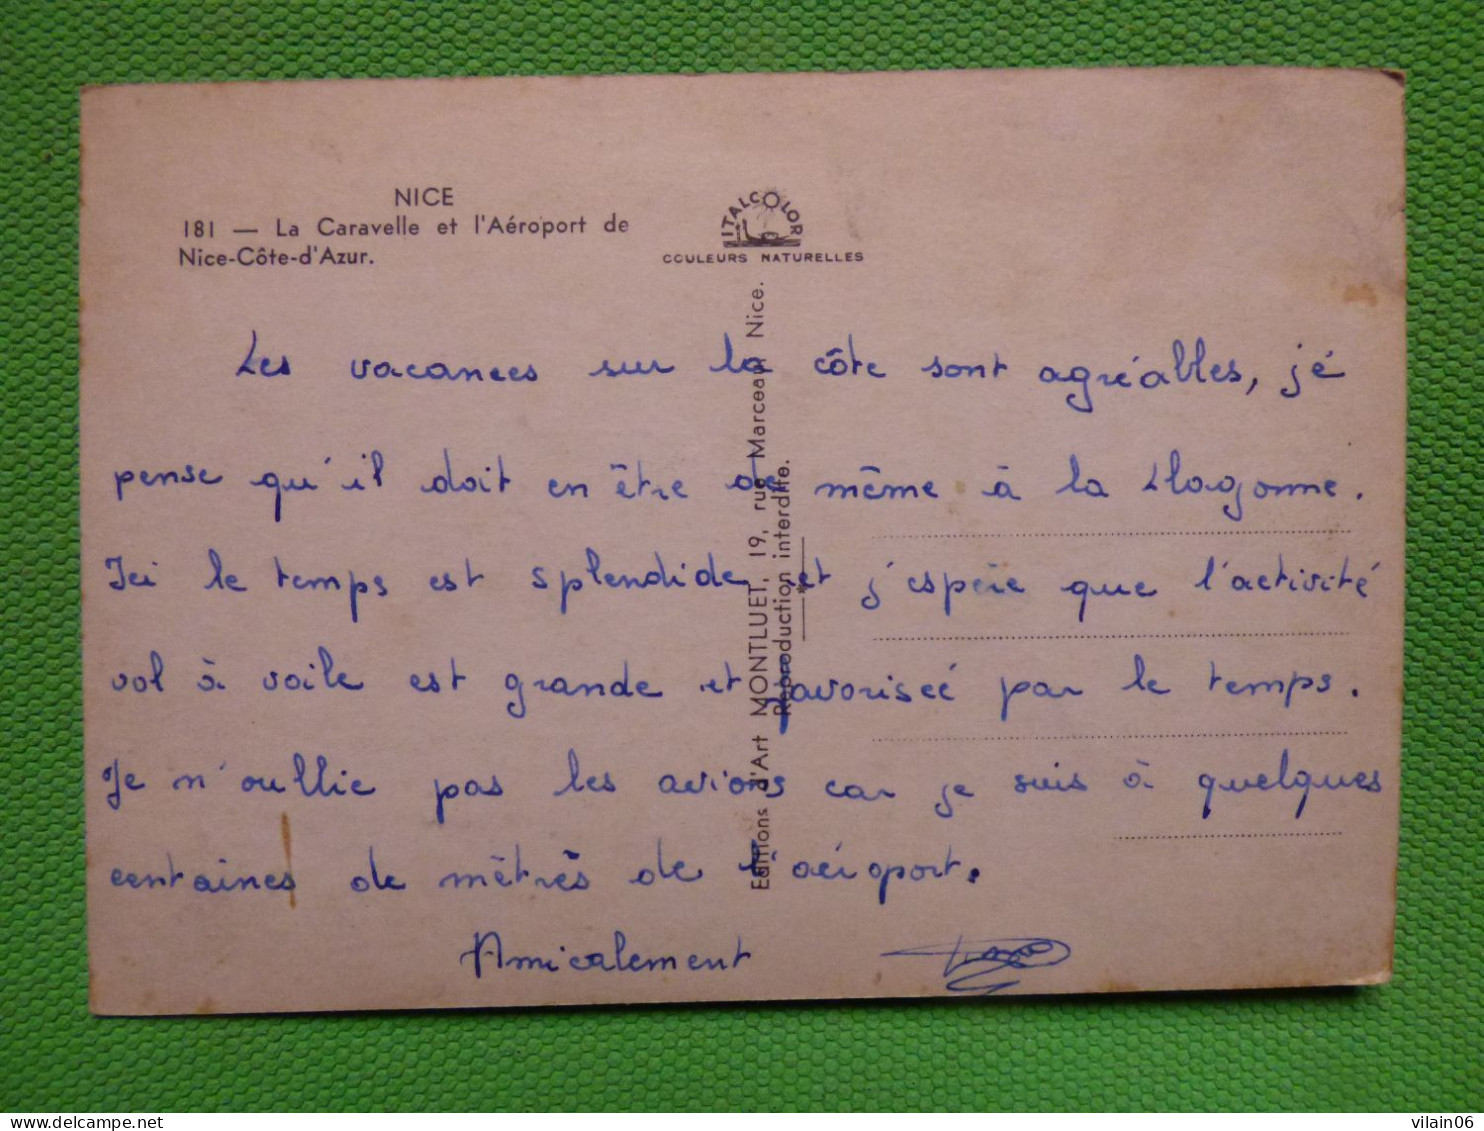 NICE
181 — La Caravelle et l'Aéroport de
Nice-Côte-d'Azur.
ITALCOLOR
COULEURS NATURELLES
Editions d'Art MONTLUET, 19, rue Marceau Nice.
Reproduction interdite.
Les vacances sur la côte sont agréables, je
pense qu'il doit en être de même à la Llagonne.
Ici le temps est splendide et j'espère que l'activité
vol à voile est grande et favorisée par le temps.
Je n'oublie pas les avions car je suis à quelques
centaines de mètres de l'aéroport.
Amicalement
delcampe.net
vilain06